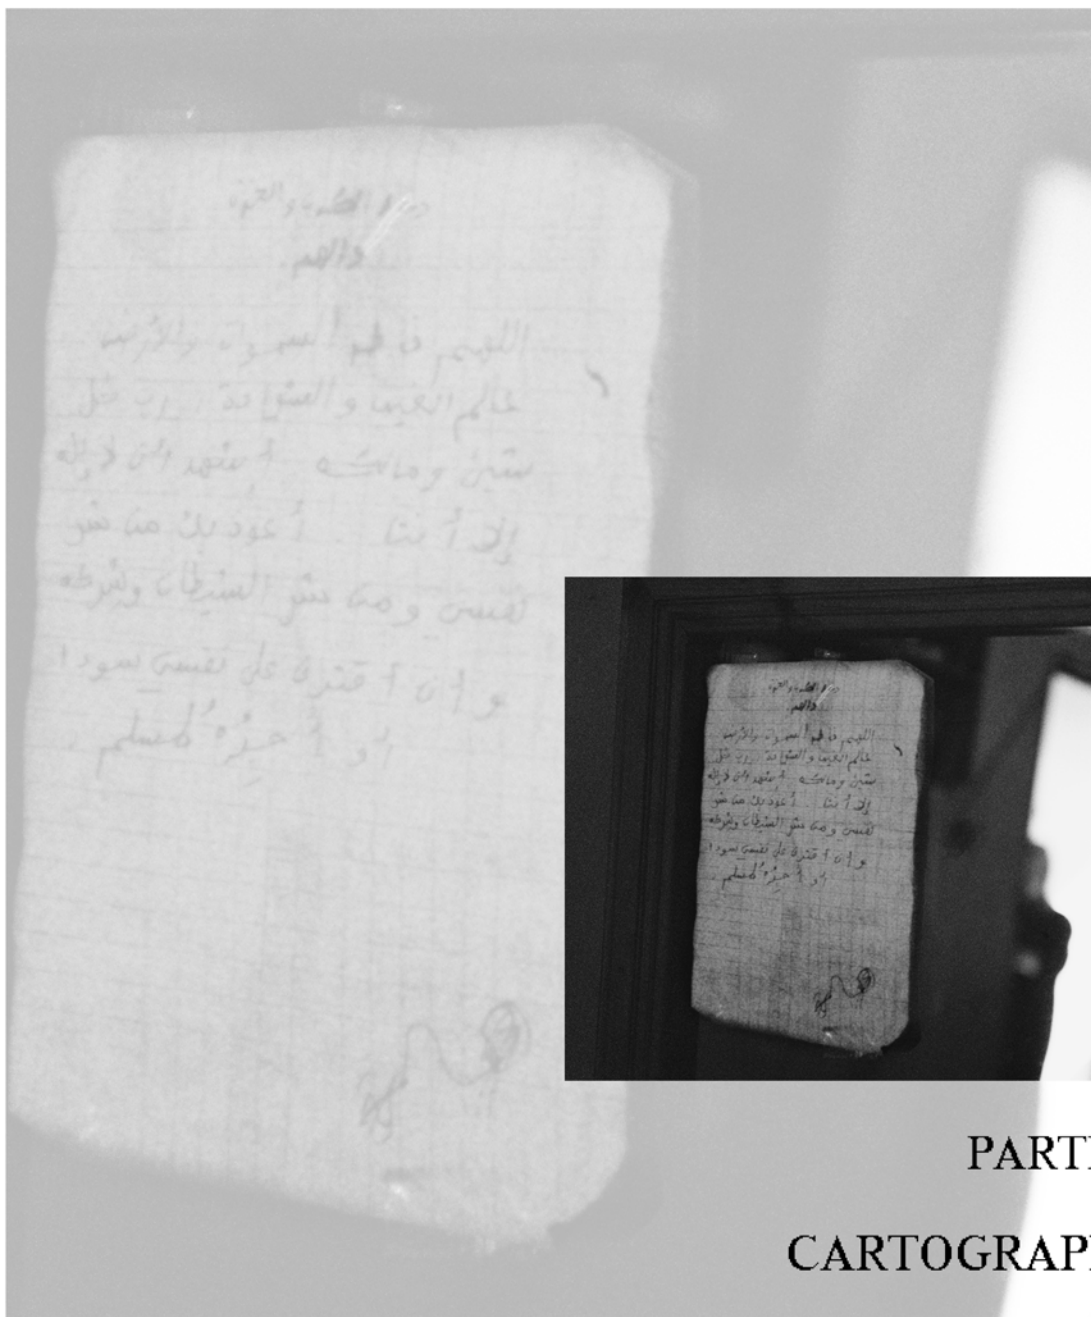 والهم
اللهم فاطر السموات والأرض
عالم الغيب و الشهادة رب كل
شيئ ومالكه أشهد أن لا إله
إلا أنت أعوذ بك من شر
نفسي ومن شر الشيطان وشركه
و إن أقترف على نفسي سوءا
أو أجره لمسلم.
PARTI
CARTOGRAP